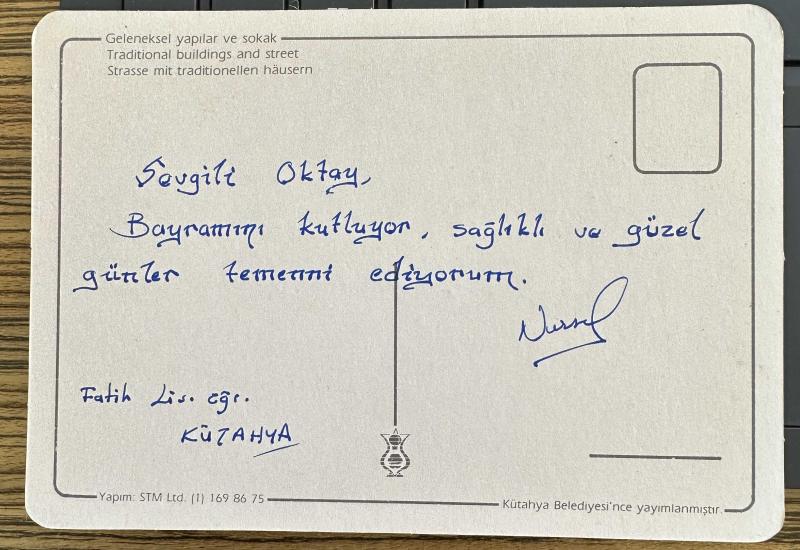 Geleneksel yapılar ve sokak
Traditional buildings and street
Strasse mit traditionellen häusern
Sevgili Oktay,
Bayramını kutluyor, sağlıklı ve güzel
günler temenni ediyorum.
Nursel
Fatih Lis. öğr.
KÜTAHYA
Yapım: STM Ltd. (1) 169 86 75
Kütahya Belediyesi'nce yayımlanmıştır.